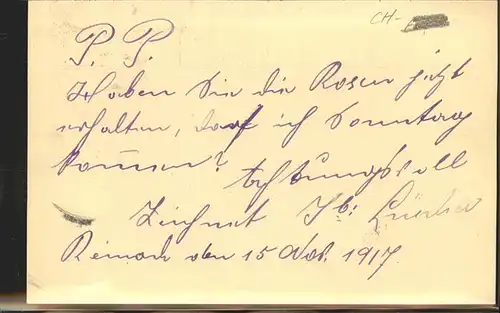 CH-
P. P.
Haben Sie die Rosen jetzt
erhalten, darf ich Sonntag
kommen?
Achtungsvoll
Zeichnet Jb:
Reinach den 15 Nov. 1917.